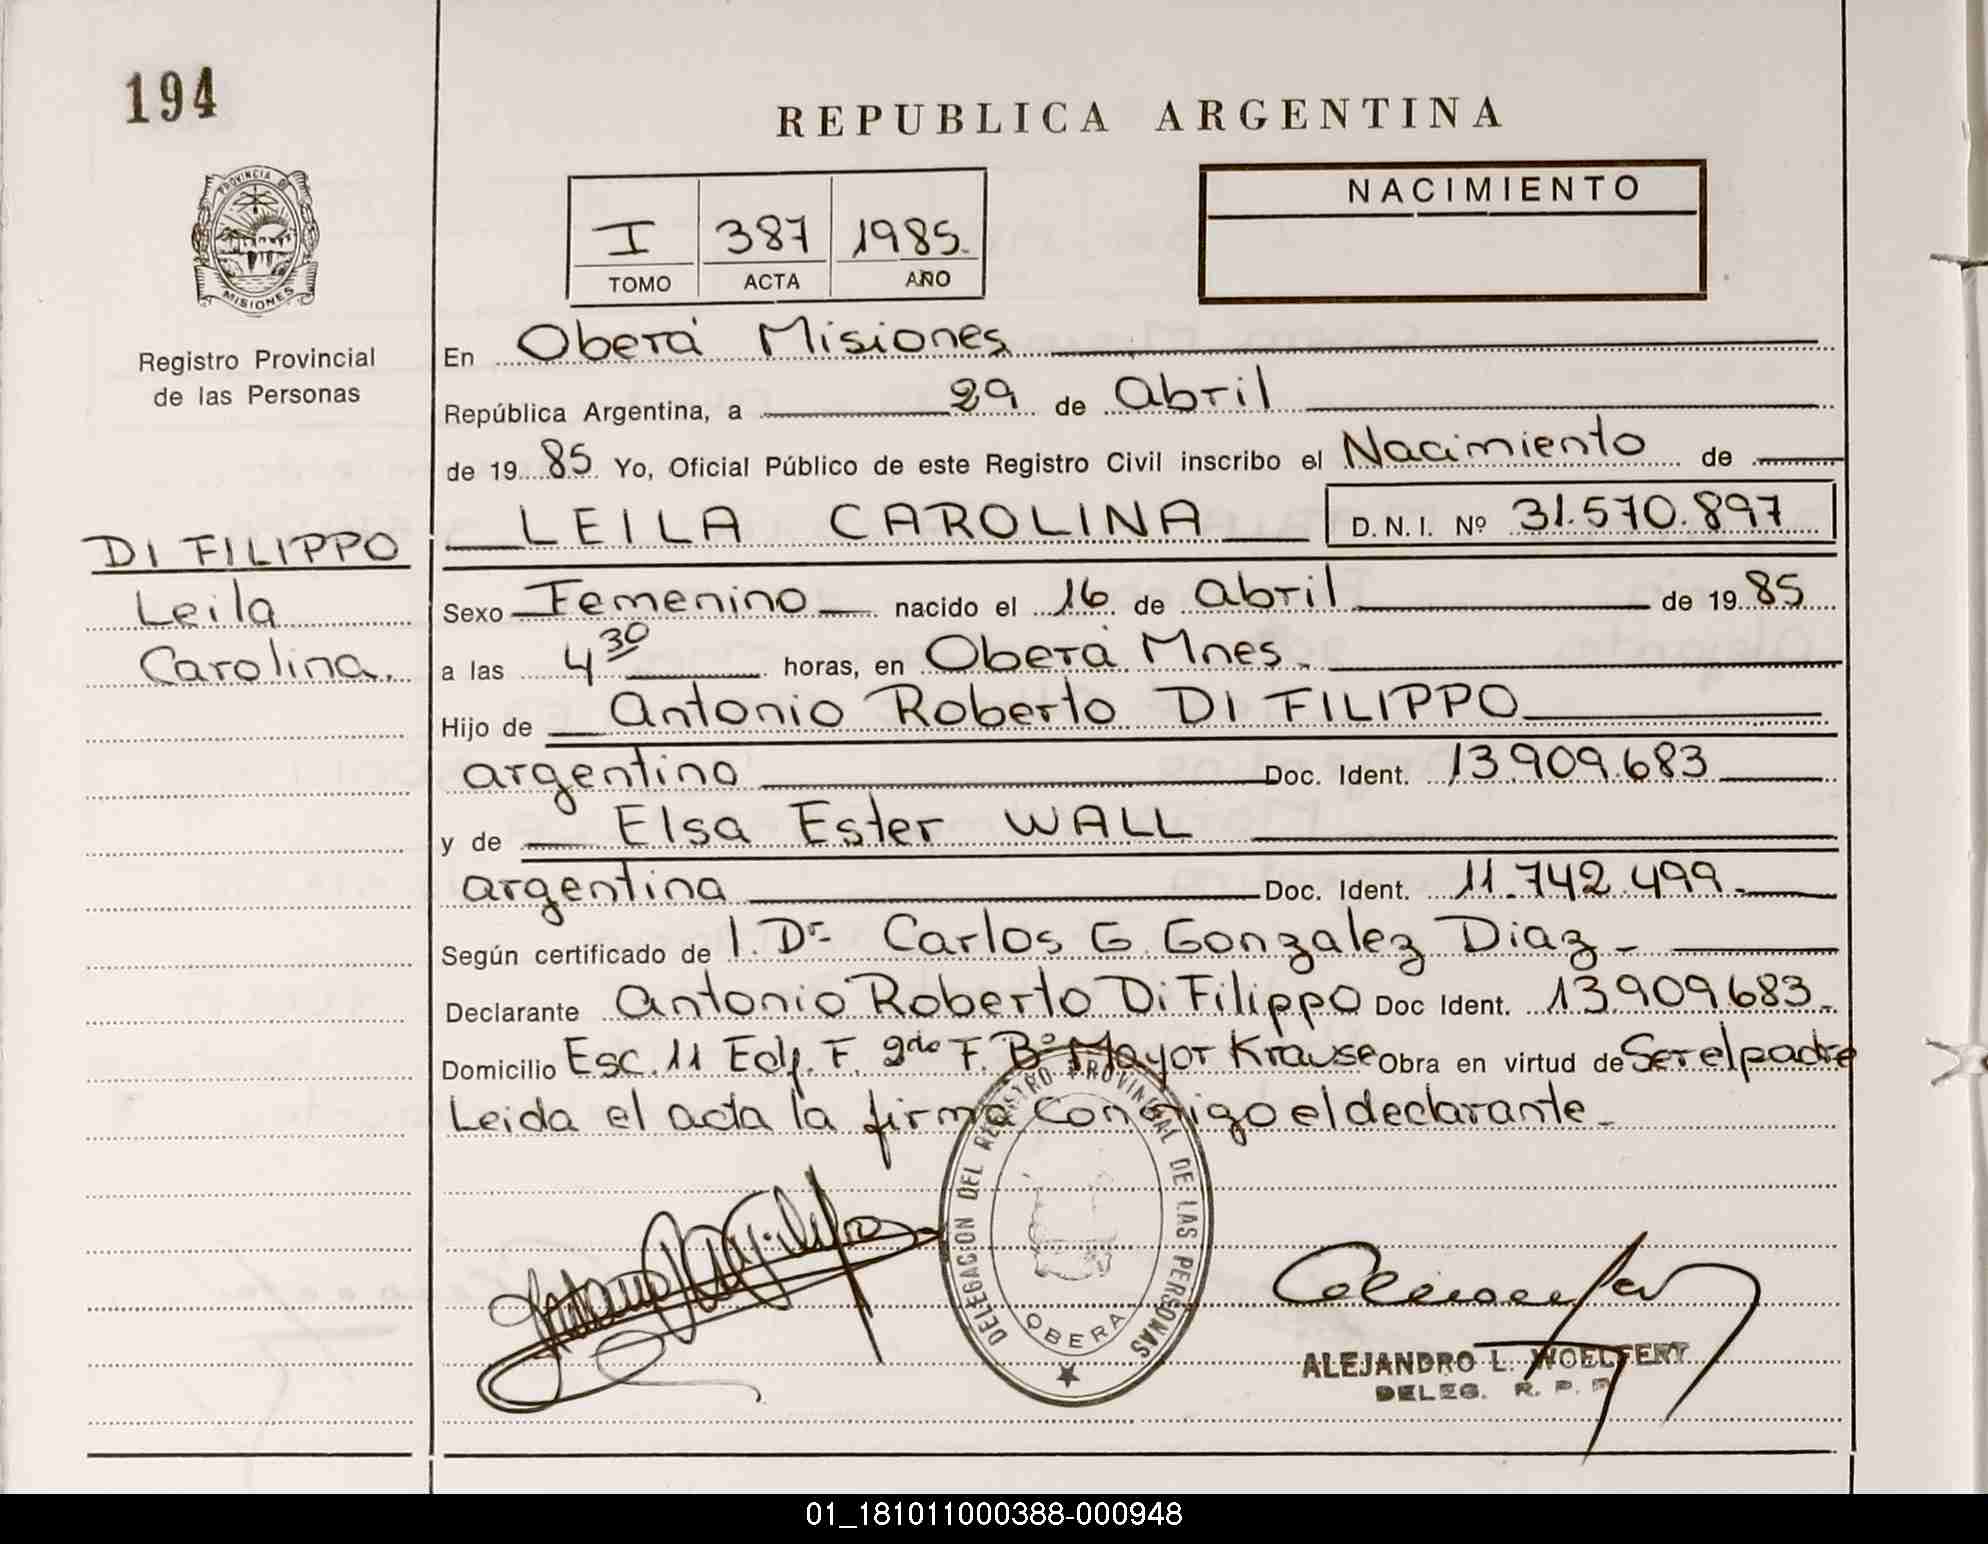 194
REPUBLICA ARGENTINA
PROVINCIA DE
MISIONES
I 387 1985.
TOMO ACTA AÑO
NACIMIENTO
Registro Provincial
de las Personas
En Oberá Misiones
República Argentina, a 29 de Abril
de 1985 Yo, Oficial Público de este Registro Civil inscribo el Nacimiento de
LEILA CAROLINA D. N. I. Nº 31.570.897
DI FILIPPO
Leila
Carolina.
Sexo Femenino nacido el 16 de Abril de 1985
a las 4 30 horas, en Oberá Mnes.
Hijo de Antonio Roberto DI FILIPPO
argentino Doc. Ident. 13.909.683
y de Elsa Ester WALL
argentina Doc. Ident. 11.742.499.
Según certificado de 1. Dr. Carlos G. Gonzalez Diaz
Declarante Antonio Roberto Di Filippo Doc Ident. 13.909.683.
Domicilio Esc. 11 Edf. F. 2do F. Bº Mayor Krause Obra en virtud de Ser el padre
Leida el acta la firma conmigo el declarante.
DELEGACION DEL REGISTRO PROVINCIAL DE LAS PERSONAS
OBERA
ALEJANDRO L. WOELFERT
DELEG. R. P. P.
01_181011000388-000948